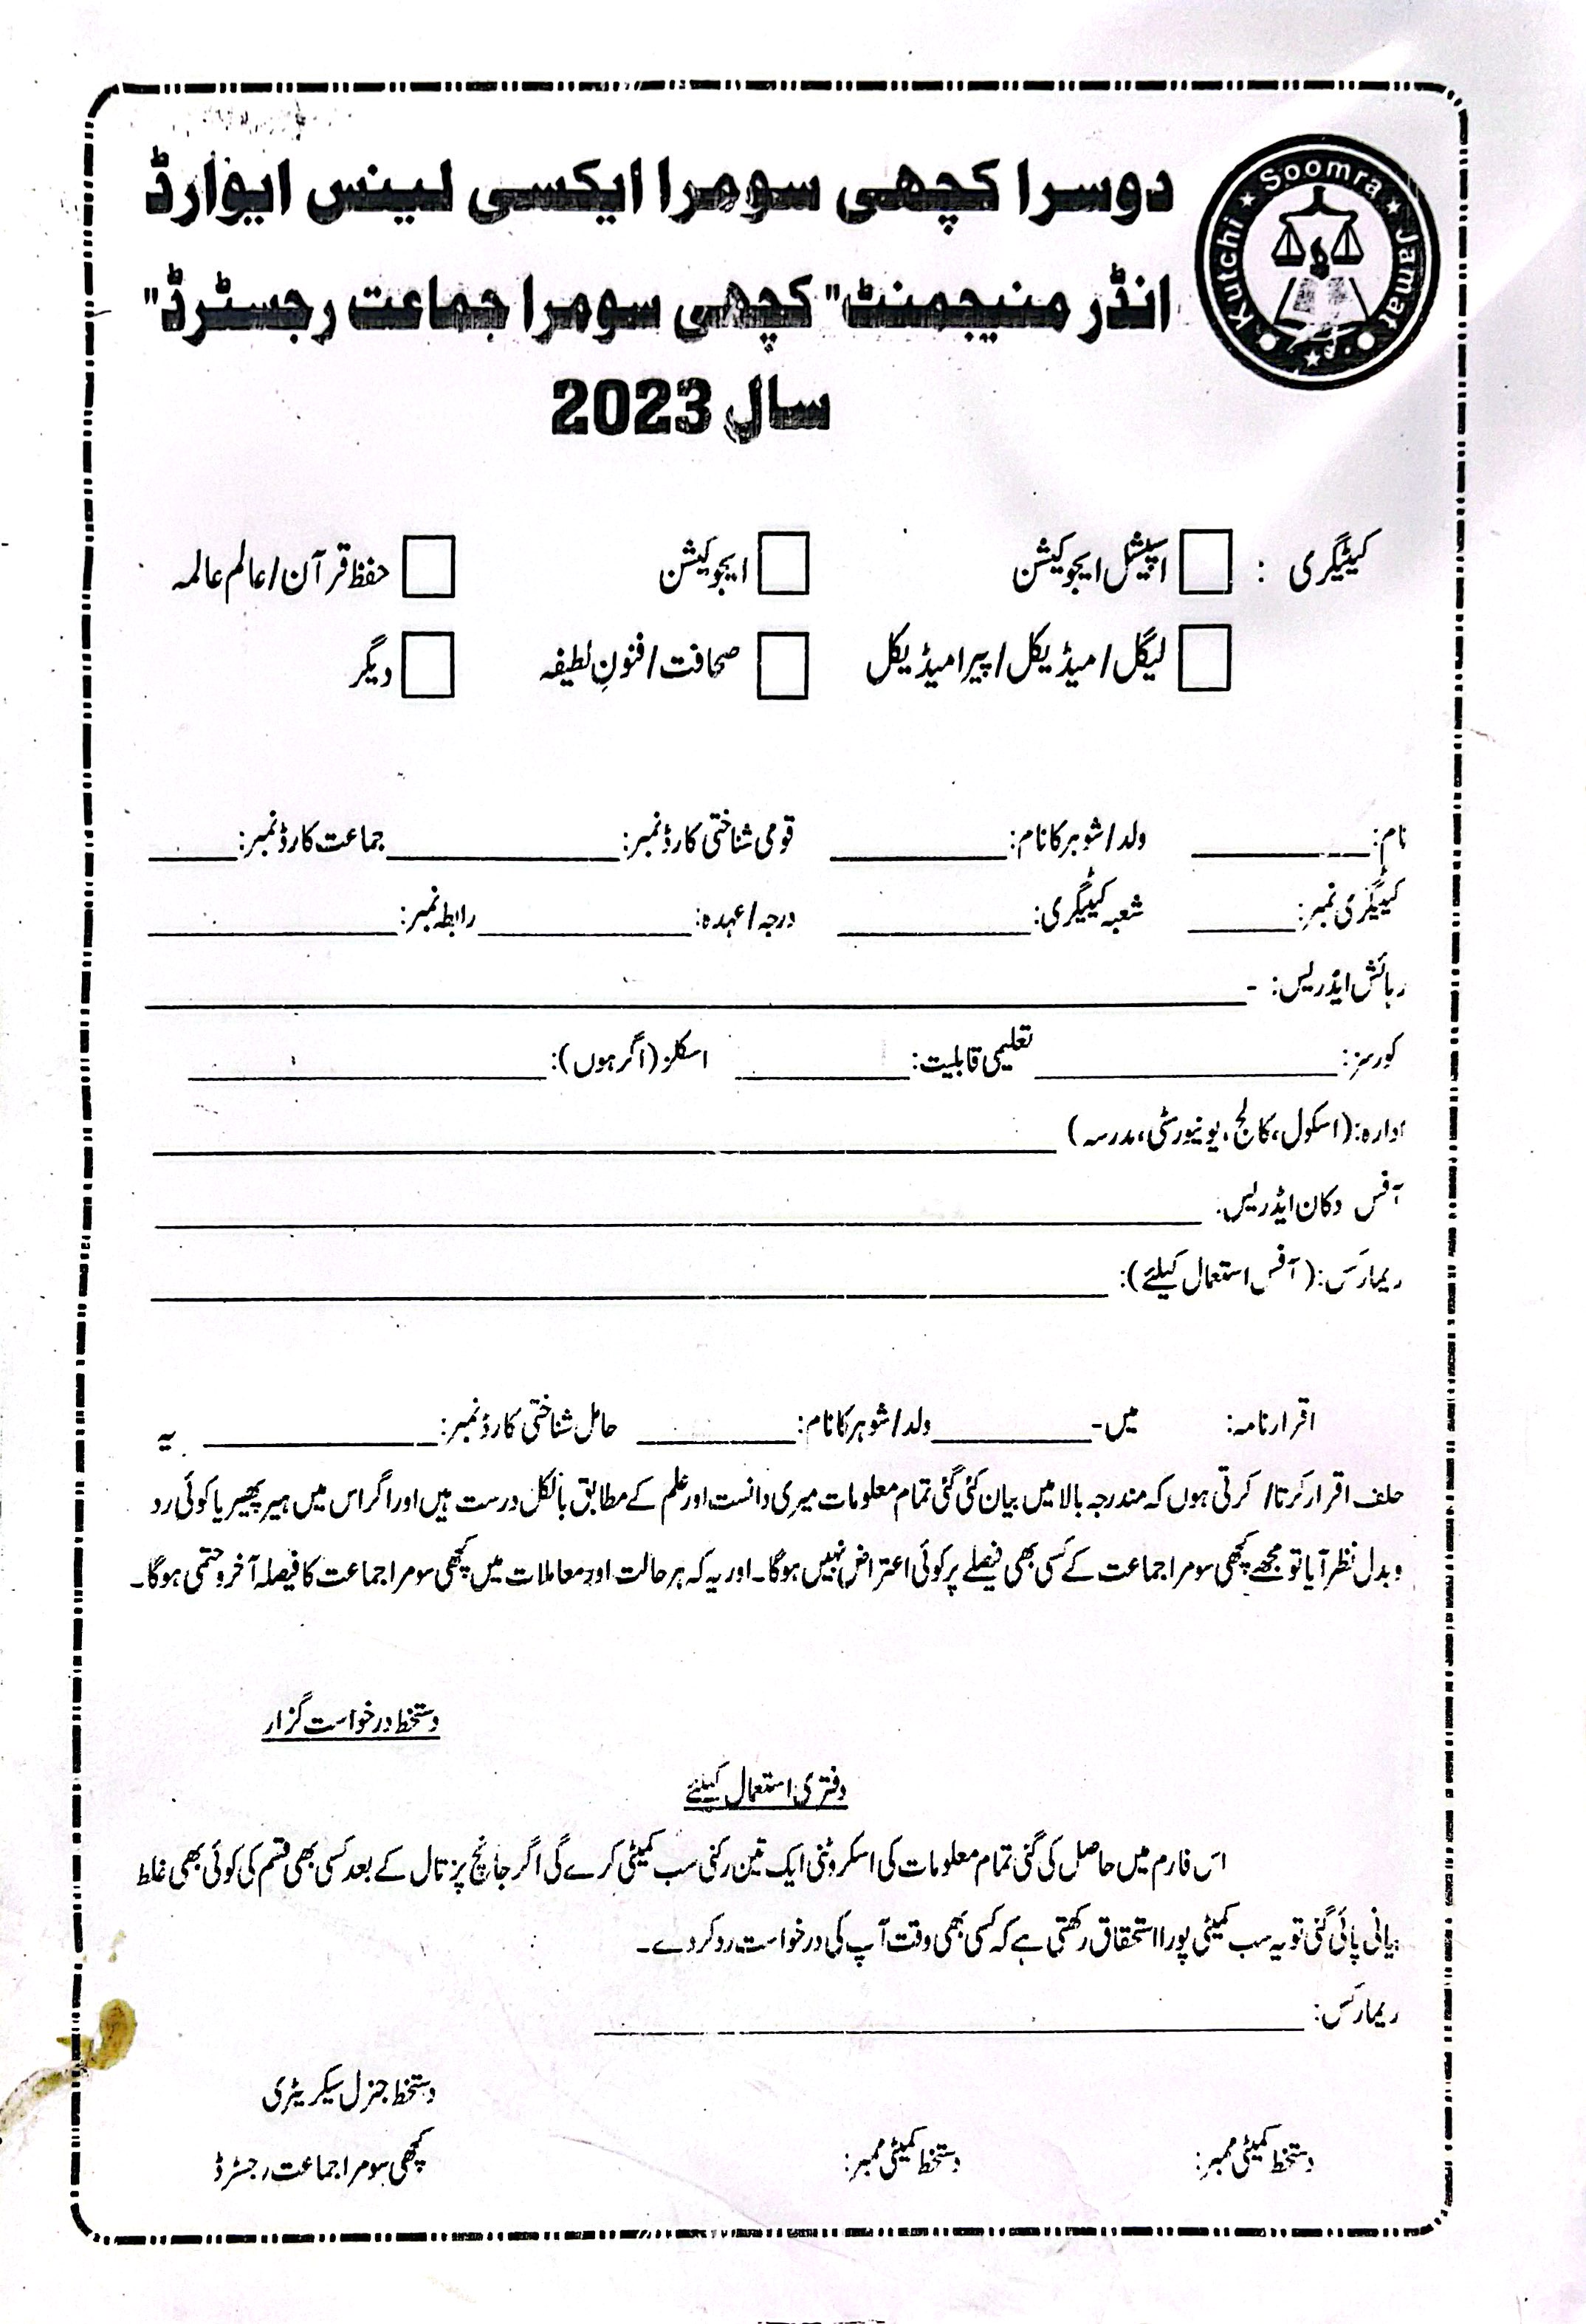 Kutchi ★ Soomra ★ Jamat
دوسرا کچھی سومرا ایکسی لینس ایوارڈ
انڈر منیجمنٹ "کچھی سومرا جماعت رجسٹرڈ"
سال 2023
کیٹیگری : اسپیشل ایجوکیشن ایجوکیشن حفظ قرآن/عالم عالمہ
لیگل/میڈیکل/پیرامیڈیکل صحافت/فنونِ لطیفہ دیگر
نام: ولد/شوہر کا نام: قومی شناختی کارڈ نمبر: جماعت کارڈ نمبر:
کیٹیگری نمبر: شعبہ کیٹیگری: درجہ/عہدہ: رابطہ نمبر:
رہائش ایڈریس: -
کورسز: تعلیمی قابلیت: اسکلز (اگر ہوں):
ادارہ: (اسکول، کالج، یونیورسٹی، مدرسہ)
آفس دکان ایڈریس:
ریمارکس: (آفس استعمال کیلئے):
اقرارنامہ: میں- ولد/شوہر کا نام: حامل شناختی کارڈ نمبر: یہ
حلف اقرار کرتا/ کرتی ہوں کہ مندرجہ بالا میں بیان کئی گئی تمام معلومات میری دانست اور علم کے مطابق بالکل درست ہیں اور اگر اس میں ہیر پھیر یا کوئی رد
و بدل نظر آیا تو مجھے کچھی سومرا جماعت کے کسی بھی فیصلے پر کوئی اعتراض نہیں ہوگا۔ اور یہ کہ ہر حالت اور معاملات میں کچھی سومرا جماعت کا فیصلہ آخر و حتمی ہوگا۔
دستخط درخواست گزار
دفتری استعمال کیلئے
اس فارم میں حاصل کی گئی تمام معلومات کی اسکروٹنی ایک تین رکنی سب کمیٹی کرے گی اگر جانچ پڑتال کے بعد کسی بھی قسم کی کوئی بھی غلط
بیانی پائی گئی تو یہ سب کمیٹی پورا استحقاق رکھتی ہے کہ کسی بھی وقت آپ کی درخواست رد کر دے۔
ریمارکس:
دستخط جنرل سیکریٹری
دستخط کمیٹی ممبر: دستخط کمیٹی ممبر: کچھی سومرا جماعت رجسٹرڈ